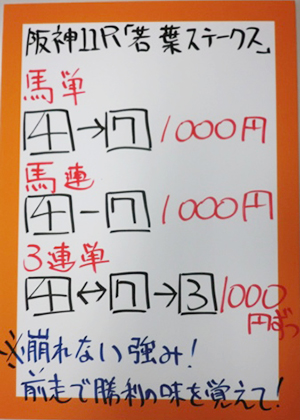 阪神11R「若葉ステークス」
馬単
4→7 1000円
馬連
4-7 1000円
3連単
4↔7→3 1000
円ずつ
※崩れない強み!
前走で勝利の味を覚えて!